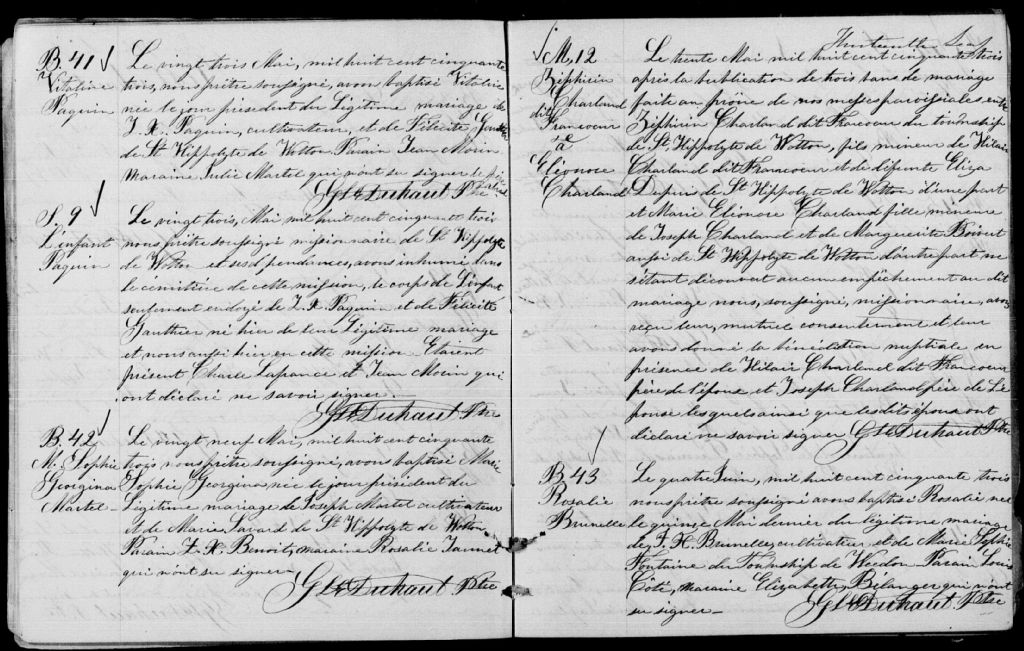 B. 41
Vitaline
Paquin
Le vingt trois Mai, mil huit cent cinquante
trois, nous prêtre soussigné, avons baptisé Vitaline
née le jour président du Légitime mariage de
F. X. Paquin, cultivateur, et de Félicité Gauthier
de St Hippolyte de Wotton. Parain Jean Morin
Maraine Julie Martel qui n'ont su signer
Gte Duhaut Ptre
S. 9
L'enfant
Paquin
Le vingt trois, Mai mil huit cent cinquante trois
nous prêtre soussigné missionnaire de St Hippolyte
de Wotton et ses dépendances, avons inhumé dans
le cemitière de cette mission, le corps de L'enfant
seulement ondoyé de F. X. Paquin et de Félicité
Gauthier né hier de leur Légitime mariage
et nous aussi hier en cette mission. Etaient
présent Charle Lafrance et Jean Morin qui
ont déclaré ne savoir signer.
Gte Duhaut Ptre
B. 42
M. Sophie
Georgina
Martel
Le vingt neuf Mai, mil huit cent cinquante
trois nous prêtre soussigné, avons baptisé Marie
Sophie Georgina née le jour président du
Légitime mariage de Joseph Martel cultivateur
et de Marie Savard de St Hippolyte de Wotton
Parain F. X. Benoit, maraine Rosalie
qui n'ont su signer
Gte Duhaut Ptre
M. 12
Zéphirin
Charland
dit
Francoeur
&
Eléonore
Charland
Le trente Mai mil huit cent cinquante trois
après la publication de trois bans de mariage
faite au prône de nos messes paroissiales, entre
Zéphirin Charland dit Francoeur du township
de St Hippolyte de Wotton, fils mineur de Hilaire
Charland dit Francoeur et de défunte Eliza
Dupuis de St Hippolyte de Wotton d'une part
et Marie Eléonore Charland fille mineure
de Joseph Charland et de Marguerite
aussi de St Hippolyte de Wotton d'autre part ne
s'étant découvert aucun empêchement au dit
mariage nous, soussigné, missionnaire, avons
reçu leur, mutuel consentement et leur
avons donné la bénédiction nuptiale en
présence de Hilaire Charland dit Francoeur
père de l'époux et Joseph Charland père de L'é
pouse lesquels ainsi que les dits époux ont
déclaré ne savoir signer Gte Duhaut Ptre
B 43
Rosalie
Brunelle
Le quatre Juin, mil huit cent cinquante trois
nous prêtre soussigné avons baptisé Rosalie née
le quinze Mai dernier du légitime mariage
de F. X. Brunelle, cultivateur, et de Marie Sophie
Fontaine du Township de Weedon. Parain Louis
Côté, maraine Elizabeth Belanger qui n'ont
su signer
Gte Duhaut Ptre